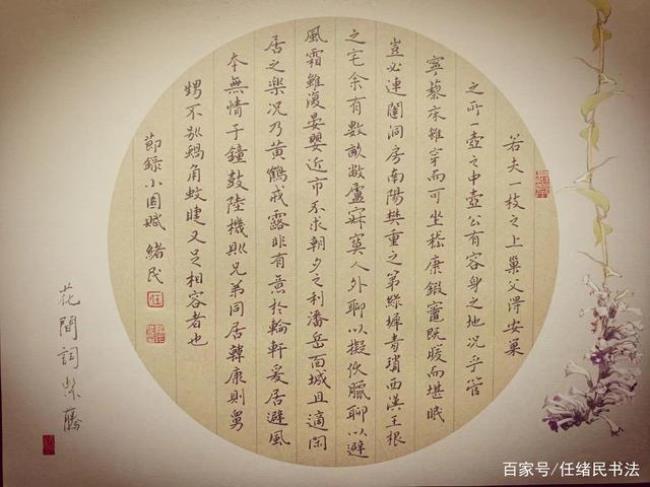 若夫一枝之上巢父得安巢
之所一壺之中壺公有容身之地況乎管
寧藜床雖穿而可坐嵇康鍛竈既暖而堪眠
豈必連闥洞房南陽樊重之第綠墀青瑣西漢王根
之宅余有數畝敝廬寂寞人外聊以擬伏臘聊以避
風霜雖復晏嬰近市不求朝夕之利潘岳面城且適閑
居之樂況乃黃鶴戒露非有意於輪軒爰居避風
本無情于鐘鼓陸機則兄弟同居韓康則舅
甥不別蝸角蚊睫又足相容者也
節錄小園賦 緒民
花間詞紫藤
百家号/任绪民书法